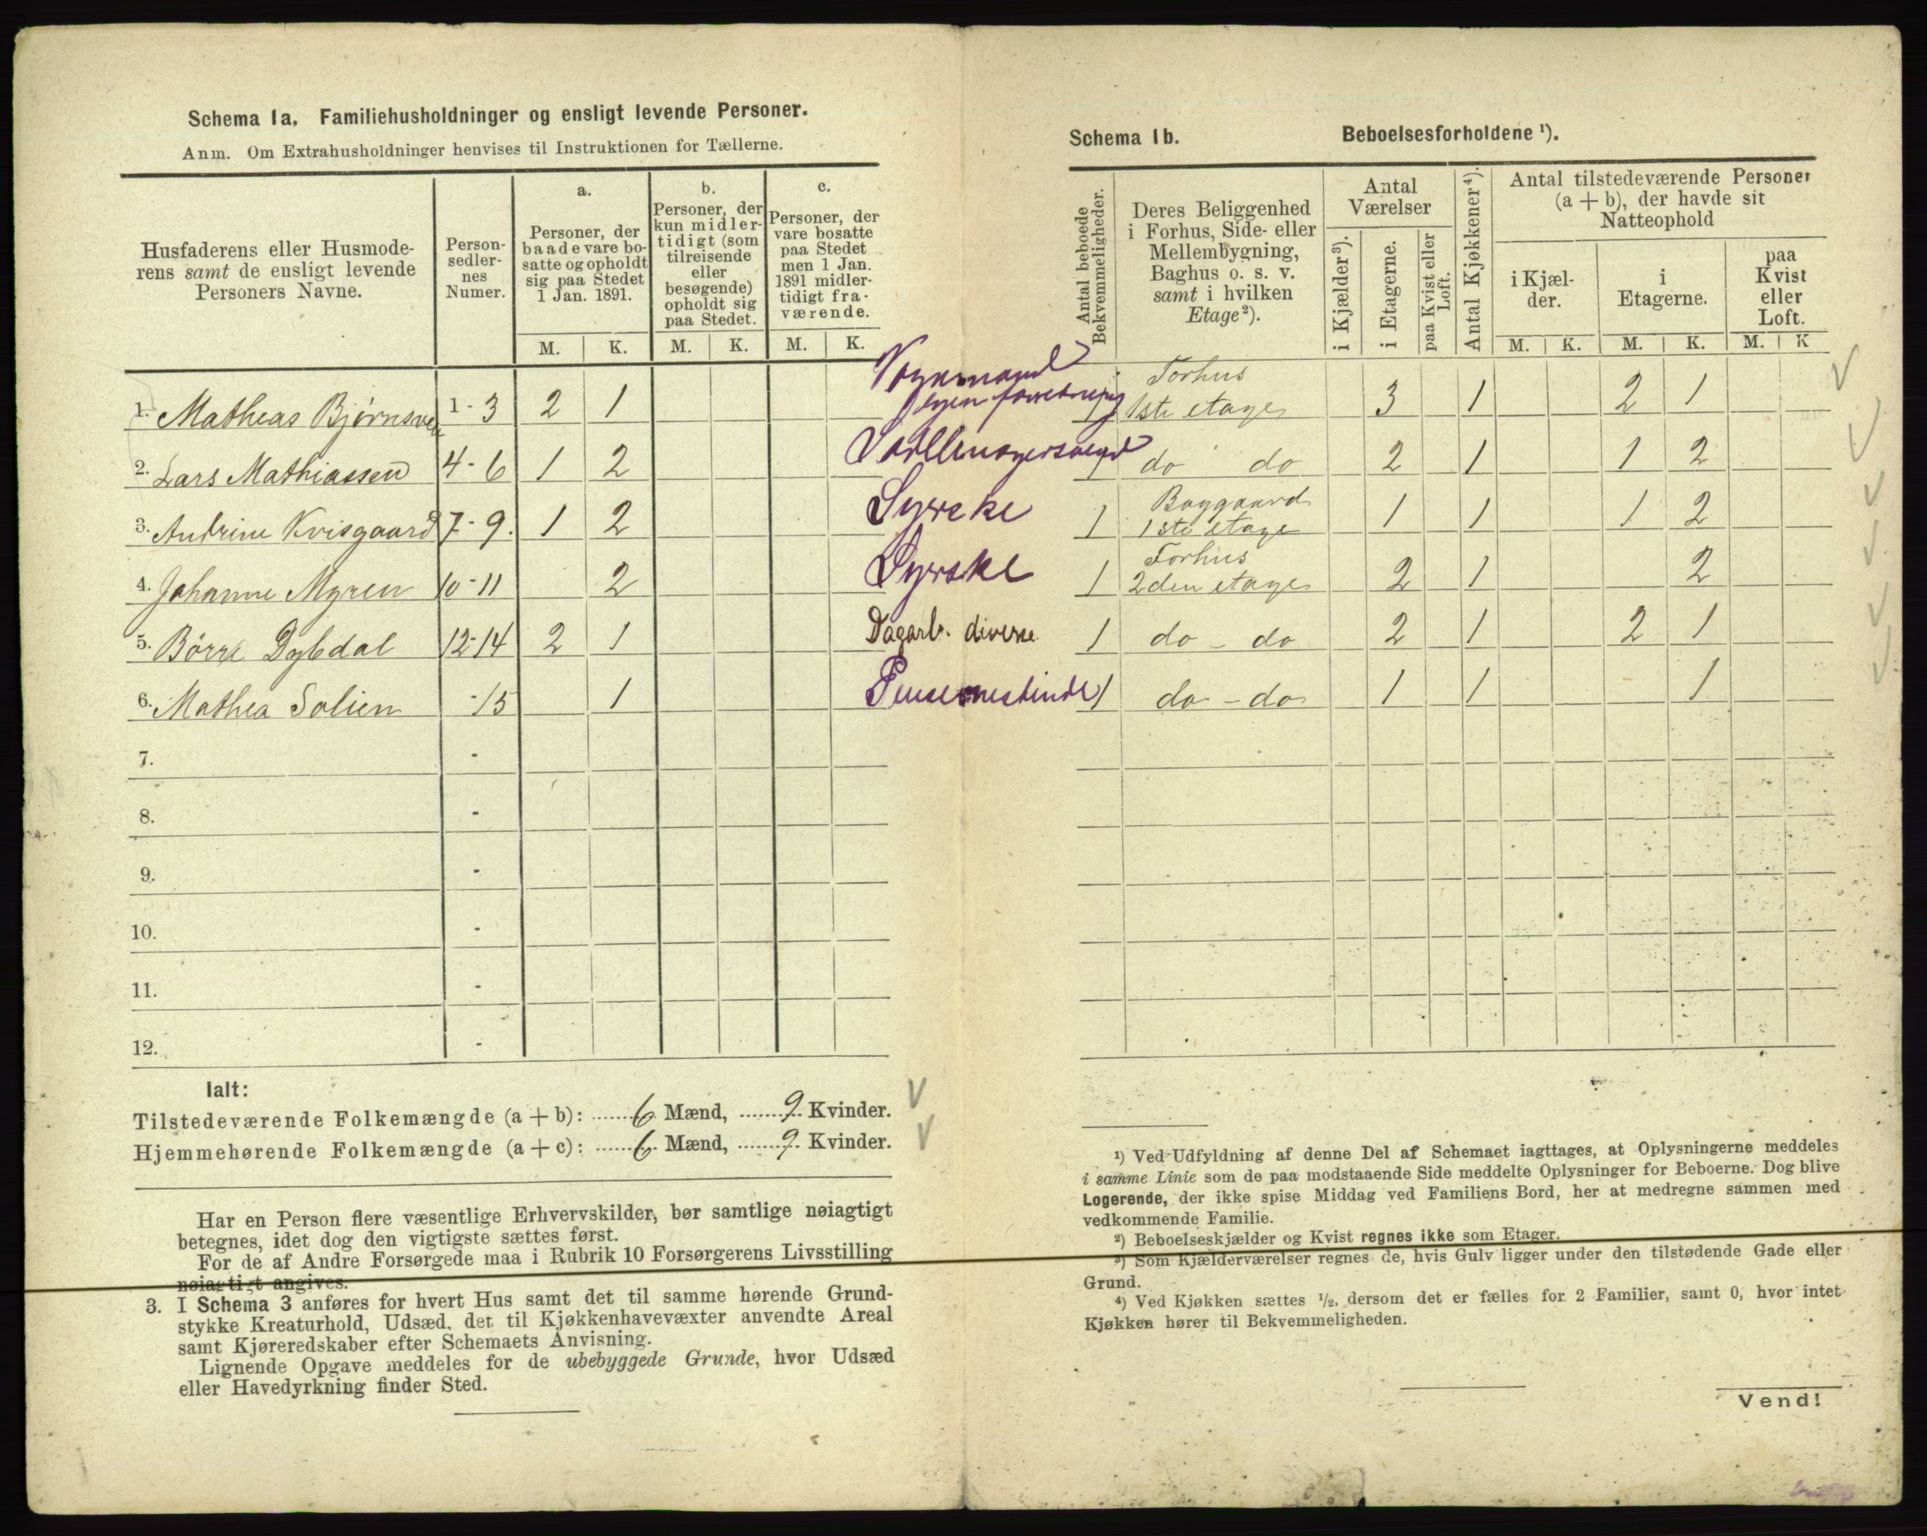 Schema 1a. Familiehusholdninger og ensligt levende Personer.
Anm. Om Extrahusholdninger henvises til Instruktionen for Tællerne.
Husfaderens eller Husmode-
rens samt de ensligt levende
Personers Navne.
Person-
sedler-
nes
Numer.
a.
Personer, der
baade vare bo-
satte og opholdt
sig paa Stedet
1 Jan. 1891.
b.
Personer, der
kun midler-
tidigt (som
tilreisende
eller
besøgende)
opholdt sig
paa Stedet.
c.
Personer, der
vare bosatte
paa Stedet
men 1 Jan.
1891 midler-
tidigt fra-
værende.
M. K. M. K. M. K.
1. Mathias Bjørnsveen 1-3 2 1
2. Lars Mathiassen 4-6 1 2
3. Andrine Kvisgaard 7-9. 1 2
4. Johanne Myren 10-11 2
5. Børre Dybdal 12-14 2 1
6. Mathea Solien -15 1
7. -
8. -
9. -
10. -
11. -
12. -
Ialt:
Tilstedeværende Folkemængde (a + b): 6 Mænd, 9 Kvinder.
Hjemmehørende Folkemængde (a + c): 6 Mænd, 9 Kvinder.
Har en Person flere væsentlige Erhvervskilder, bør samtlige nøiagtigt
betegnes, idet dog den vigtigste sættes først.
For de af Andre Forsørgede maa i Rubrik 10 Forsørgerens Livsstilling
nøiagtigt angives.
3. I Schema 3 anføres for hvert Hus samt det til samme hørende Grund-
stykke Kreaturhold, Udsæd, det til Kjøkkenhavevæxter anvendte Areal
samt Kjøreredskaber efter Schemaets Anvisning.
Lignende Opgave meddeles for de ubebyggede Grunde, hvor Udsæd
eller Havedyrkning finder Sted.
Schema 1b. Beboelsesforholdene ¹).
Antal beboede
Bekvemmeligheder.
Deres Beliggenhed
i Forhus, Side- eller
Mellembygning,
Baghus o. s. v.
samt i hvilken
Etage²).
Antal
Værelser
i Kjælder³).
i Etagerne.
paa Kvist eller
Loft.
Antal Kjøkkener⁴).
Antal tilstedeværende Personer
(a + b), der havde sit
Natteophold
i Kjæl-
der.
i
Etagerne.
paa
Kvist
eller
Loft.
M. K. M. K. M. K
Vognmand
egen forretning 1 Forhus
1ste etage 3 1 2 1
1 do do 2 1 1 2
Syerske 1 Baggaard
1ste etage 1 1 1 2
Syerske 1 Forhus
2den etage 2 1 2
Dagarb. diverse 1 do - do 2 1 2 1
1 do - do 1 1 1
¹) Ved Udfyldning af denne Del af Schemaet iagttages, at Oplysningerne meddeles
i samme Linie som de paa modstaaende Side meddelte Oplysninger for Beboerne. Dog blive
Logerende, der ikke spise Middag ved Familiens Bord, her at medregne sammen med
vedkommende Familie.
²) Beboelseskjælder og Kvist regnes ikke som Etager.
³) Som Kjælderværelser regnes de, hvis Gulv ligger under den tilstødende Gade eller
Grund.
⁴) Ved Kjøkken sættes ½, dersom det er fælles for 2 Familier, samt 0, hvor intet
Kjøkken hører til Bekvemmeligheden.
Vend!